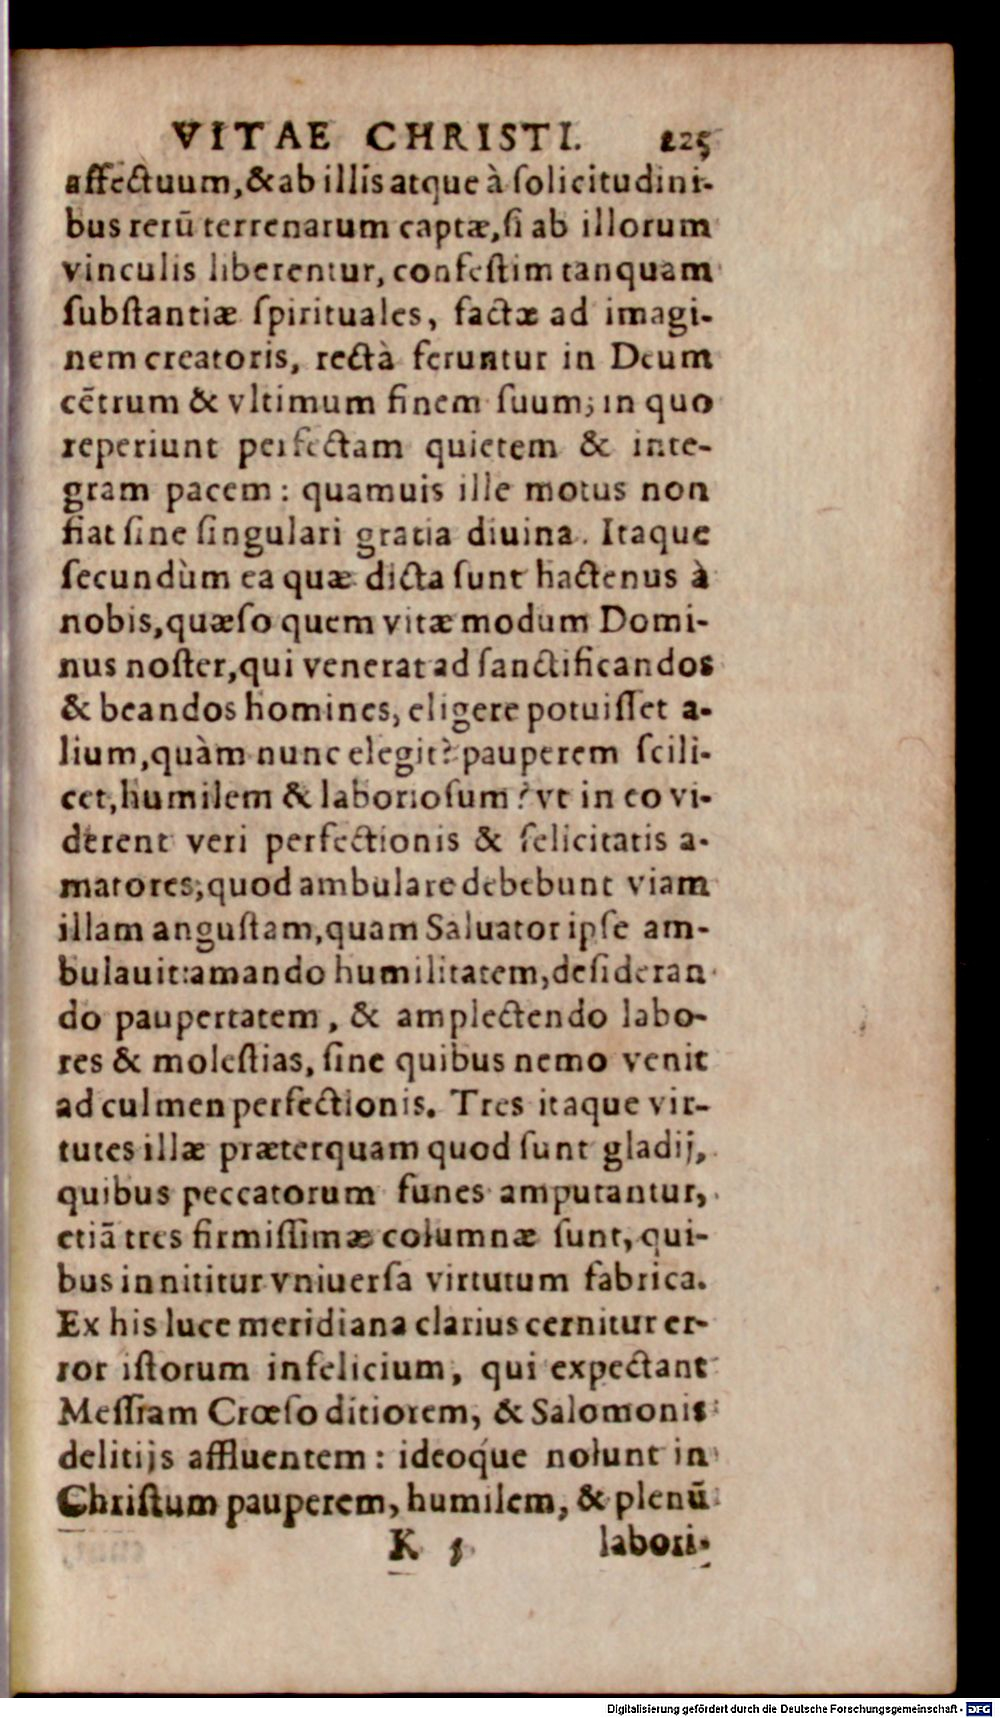 VITAE CHRISTI. 225
affectuum, & ab illis atque à solicitudini-
bus rerū terrenarum captæ, si ab illorum
vinculis liberentur, confestim tanquam
substantiæ spirituales, factæ ad imagi-
nem creatoris, rectà feruntur in Deum
cētrum & vltimum finem suum; in quo
reperiunt perfectam quietem & inte-
gram pacem: quamuis ille motus non
fiat sine singulari gratia diuina. Itaque
secundùm ea quæ dicta sunt hactenus à
nobis, quæso quem vitæ modum Domi-
nus noster, qui venerat ad sanctificandos
& beandos homines, eligere potuisset a-
lium, quàm nunc elegit? pauperem scili-
cet, humilem & laboriosum? vt in eo vi-
derent veri perfectionis & felicitatis a-
matores, quod ambulare debebunt viam
illam angustam, quam Saluator ipse am-
bulauit: amando humilitatem, desideran
do paupertatem, & amplectendo labo-
res & molestias, sine quibus nemo venit
ad culmen perfectionis. Tres itaque vir-
tutes illæ præterquam quod sunt gladij,
quibus peccatorum funes amputantur,
etiā tres firmissimæ columnæ sunt, qui-
bus innititur vniuersa virtutum fabrica.
Ex his luce meridiana clarius cernitur er-
ror istorum infelicium, qui expectant
Messiam Crœso ditiorem, & Salomonis
delitijs affluentem: ideoque nolunt in
Christum pauperem, humilem, & plenū
K 5 labori-
Digitalisierung gefördert durch die Deutsche Forschungsgemeinschaft - DFG